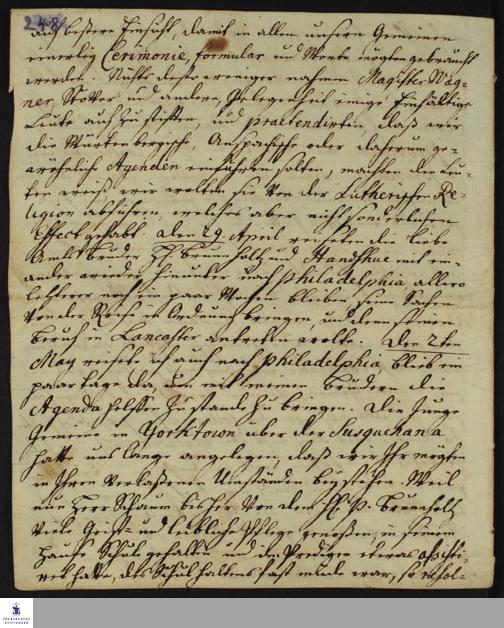 248
auf bessere Einsicht, damit in allen unsern Gemeinen
einerley Cerimonie, formular und Worte mögten gebraucht
werden. Nichts desto weniger nahmen Magister Wag-
ner, Stöver und andere, Gelegenheit einige Einfältige
Leute auf zu stifften, und praetendirten daß wir
die Würtenbergische, Anspachische oder daherum ge-
wöhnliche Agenden einführen solten, machten die Leu-
te weiß wir wolten sie von der Lutherischen Re-
ligion abführen, welches aber nicht sonderlichen
Effect gehabt. den 29. April reiseten die liebe
Amts brüder H. Brunholtz und Handschue mit ein-
ander wieder hinunter nach Philadelphia, allwo
letzterer noch ein paar Wochen bleiben, seine Sachen
von der Reise in Ordnung bringen, und denn seinen
Beruf in Lancaster antreten wolte. Den 2ten
May reisete ich auch nach Philadelphia, blieb ein
paar tage da, um mit meinen Brüdern die
Agenda helffen zu stande zu bringen. Die Junge
Gemeine in Yorktown über der Susquehana
hatte uns lange angelegen, daß wir Ihr mögten
in Ihren verlaßenen Umständen beystehen. Weil
nun Herr Schaum bisher von dem H. P. Brunholtz
viele Geist- und leibliche Pflege genoßen, in seinem
Hause Schul gehalten und im Predigen etwas assisti-
ret hatte, des Schulhaltens fast müde war, so resol-
FRANCKESCHE
STIFTUNGEN